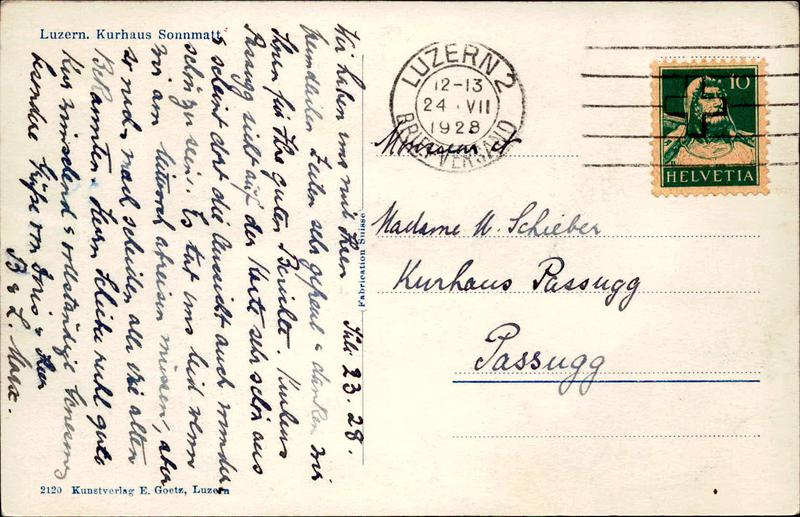 Luzern. Kurhaus Sonnmatt
Juli 23. 28.
Wir haben uns mit Ihren
freundlichen Zeilen sehr gefreut & danken wir
Ihnen für Ihre guten Berichte. Kurhaus
Passugg sieht auf der Karte sehr schön aus
& scheint dort die Aussicht auch wunder
schön zu sein. Es tut uns leid wenn
wir am Mittwoch abreisen müssen, aber
so nach & nach scheiden alle die alten
Bekannten. Herrn Schieber recht gute
Kur wünschend & vollständige Genesung
senden Grüsse von Doris & Ihren
B & L. Marx.
Fabrication Suisse
2120 Kunstverlag E. Goetz, Luzern
LUZERN 2
12-13
24 · VII
1928
BRIEFVERSAND
10
HELVETIA
Monsieur et
Madame M. Schieber
Kurhaus Passugg
Passugg